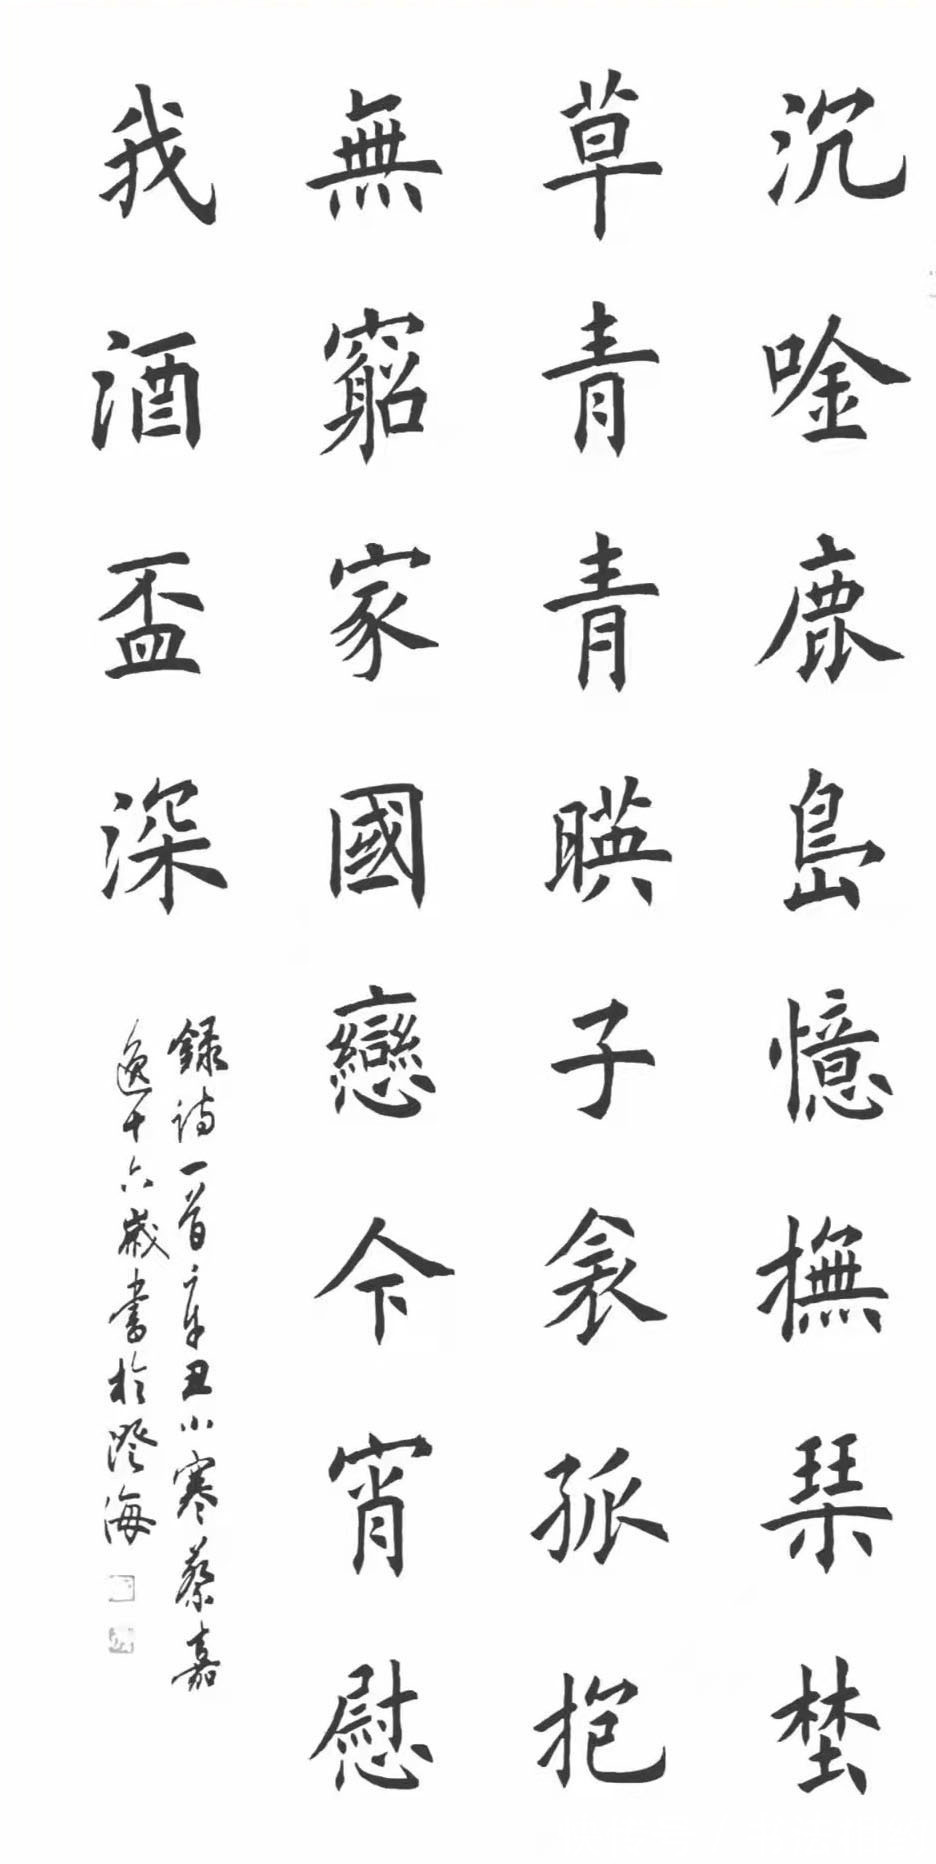 沉唫鹿島憶撫琹埜
草青青暎子衾孤抱
無竆家國戀今宵慰
我酒盃深
録詩一首辛丑小寒蔡嘉
逸十六歲書於澄海